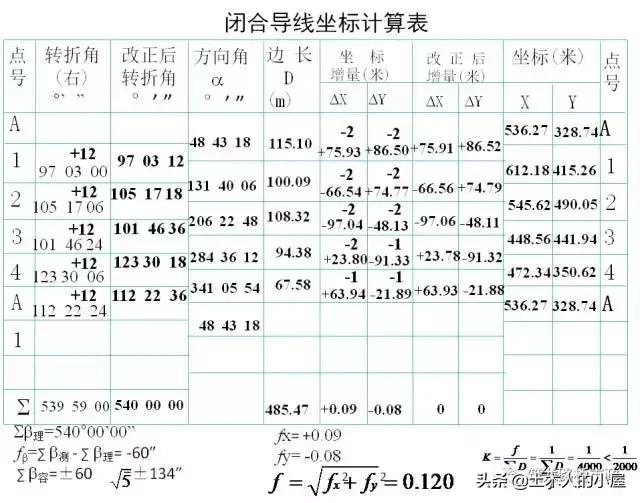 闭合导线坐标计算表
点号 转折角(右) ° ′ ″ 改正后转折角 ° ′ ″ 方向角 α ° ′ ″ 边长 D (m) 坐标增量(米) 改正后增量(米) 坐标(米) 点号
ΔX ΔY ΔX ΔY X Y
A 536.27 328.74 A
48 43 18 115.10 -2 -2
+75.93 +86.50 +75.91 +86.52
1 +12 97 03 00 97 03 12 612.18 415.26 1
131 40 06 100.09 -2
-66.54 +74.77 -66.56 +74.79
2 +12 105 17 06 105 17 18 545.62 490.05 2
206 22 48 108.32 -2 -2
-97.04 -48.13 -97.06 -48.11
3 +12 101 46 24 101 46 36 448.56 441.94 3
284 36 12 94.38 -2 -1
+23.80 -91.33 +23.78 -91.32
4 +12 123 30 06 123 30 18 472.34 350.62 4
341 05 54 67.58 -1 -1
+63.94 -21.89 +63.93 -21.88
A +12 112 22 24 112 22 36 536.27 328.74 A
48 43 18
1
∑ 539 59 00 540 00 00 485.47 +0.09 -0.08 0 0
Σβ理=540°00′00″
fβ=∑β测 - ∑β理= -60″
∑β容=±60 √5 ±134″
fx= +0.09
fy= -0.08
f = √fx²+fy² = 0.120
K = f/∑D = 1/∑D = 1/4000 < 1/2000
头条 @土木人的小屋